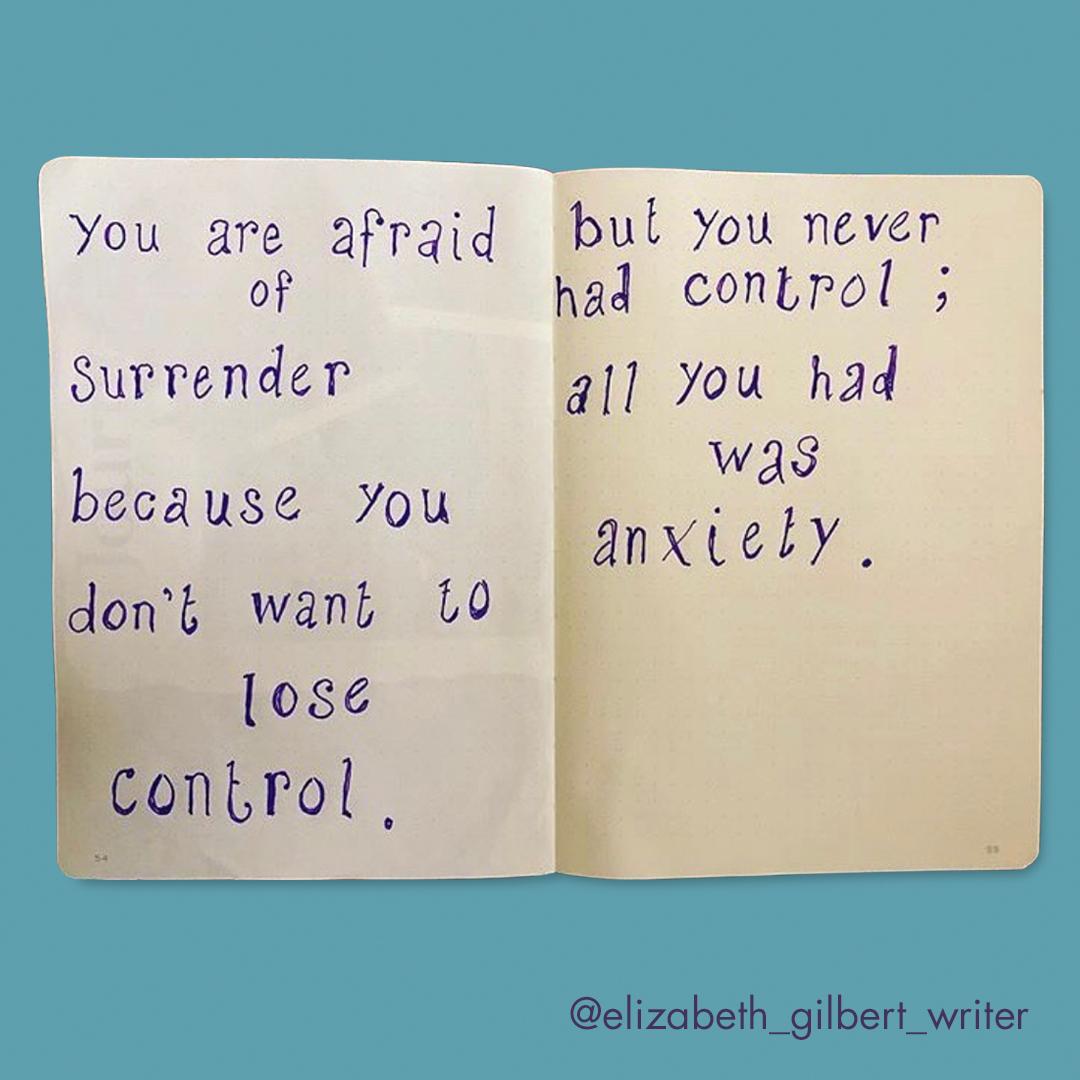 you are afraid
of
surrender
because you
don't want to
lose
control.
54
but you never
had control ;
all you had
was
anxiety.
@elizabeth_gilbert_writer